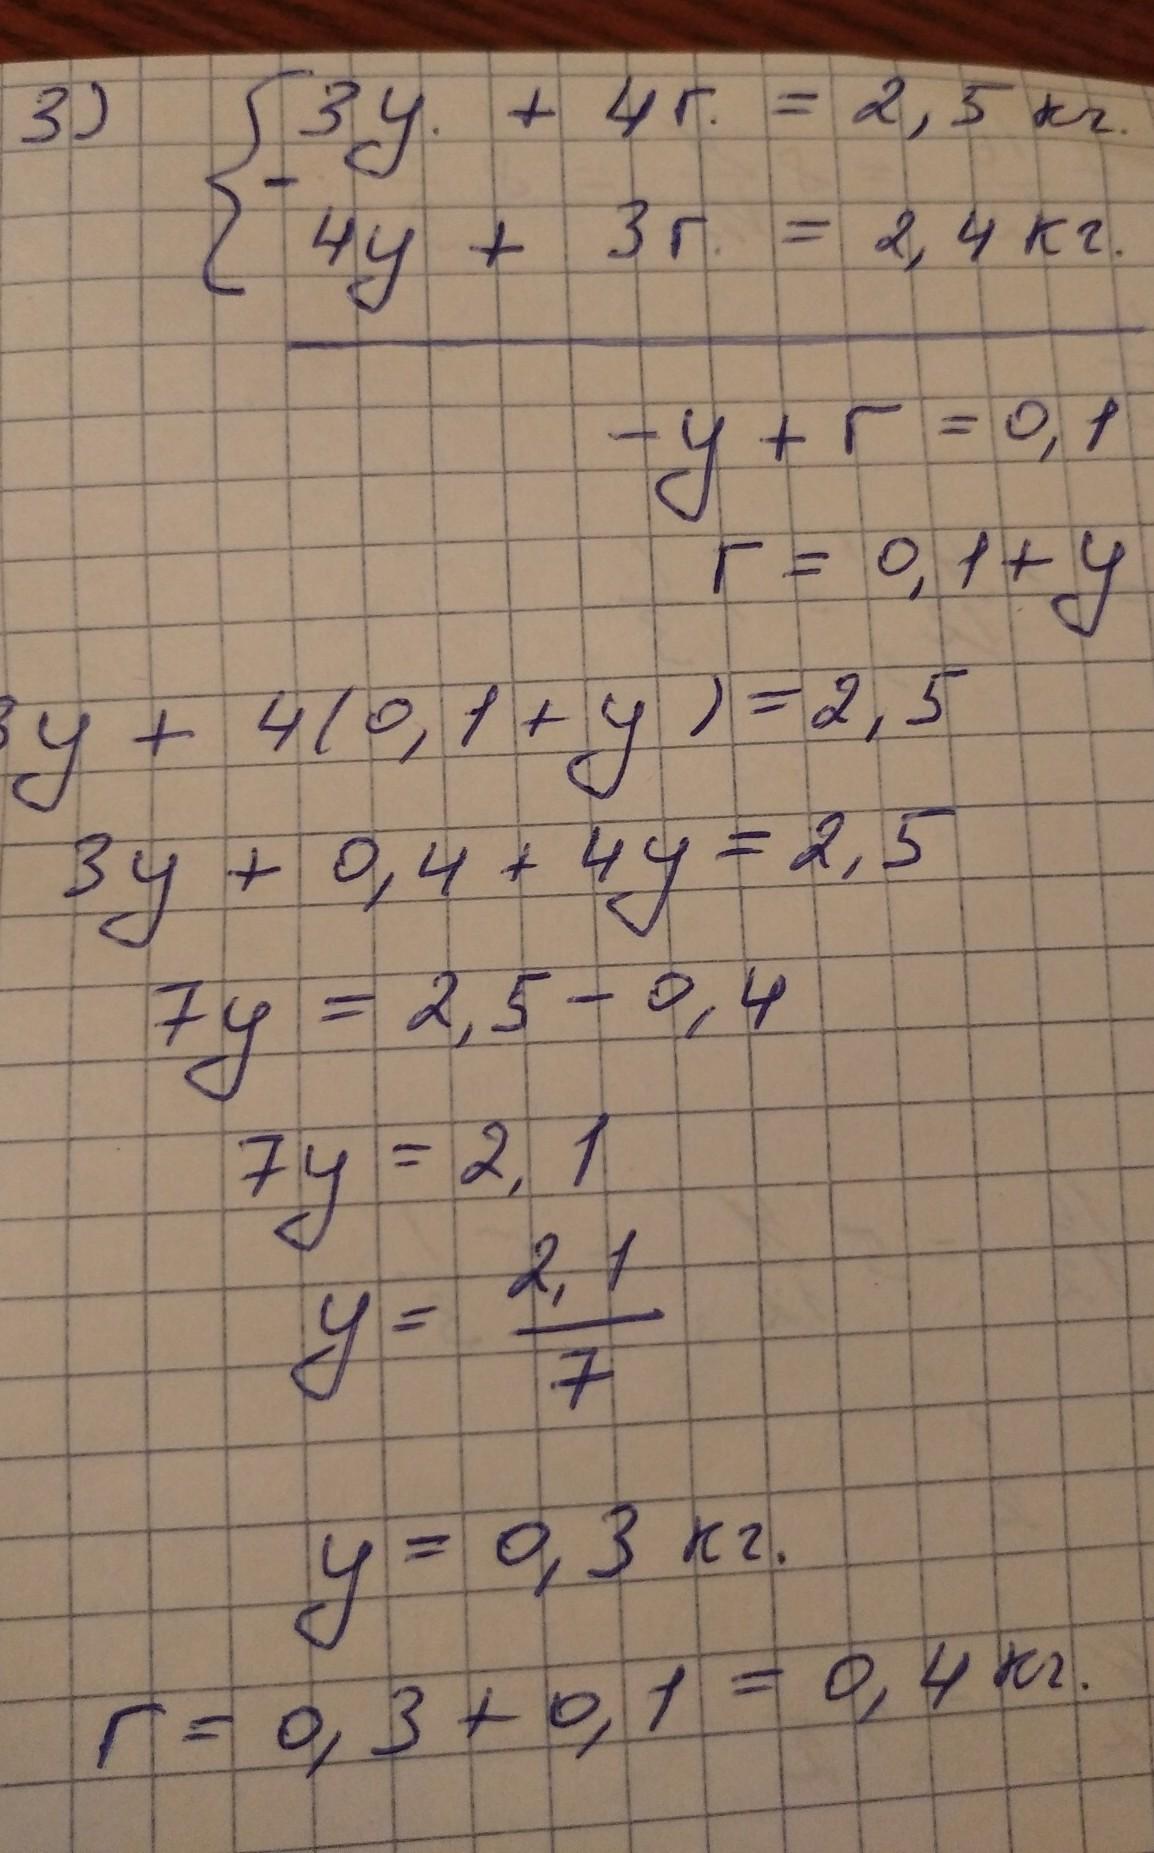 3) 3у. + 4г. = 2,5 кг.
-
4у + 3г. = 2,4 кг.
-у + г = 0,1
г = 0,1 + у
3у + 4(0,1 + у) = 2,5
3у + 0,4 + 4у = 2,5
7у = 2,5 - 0,4
7у = 2,1
у = 2,1/7
у = 0,3 кг.
г = 0,3 + 0,1 = 0,4 кг.